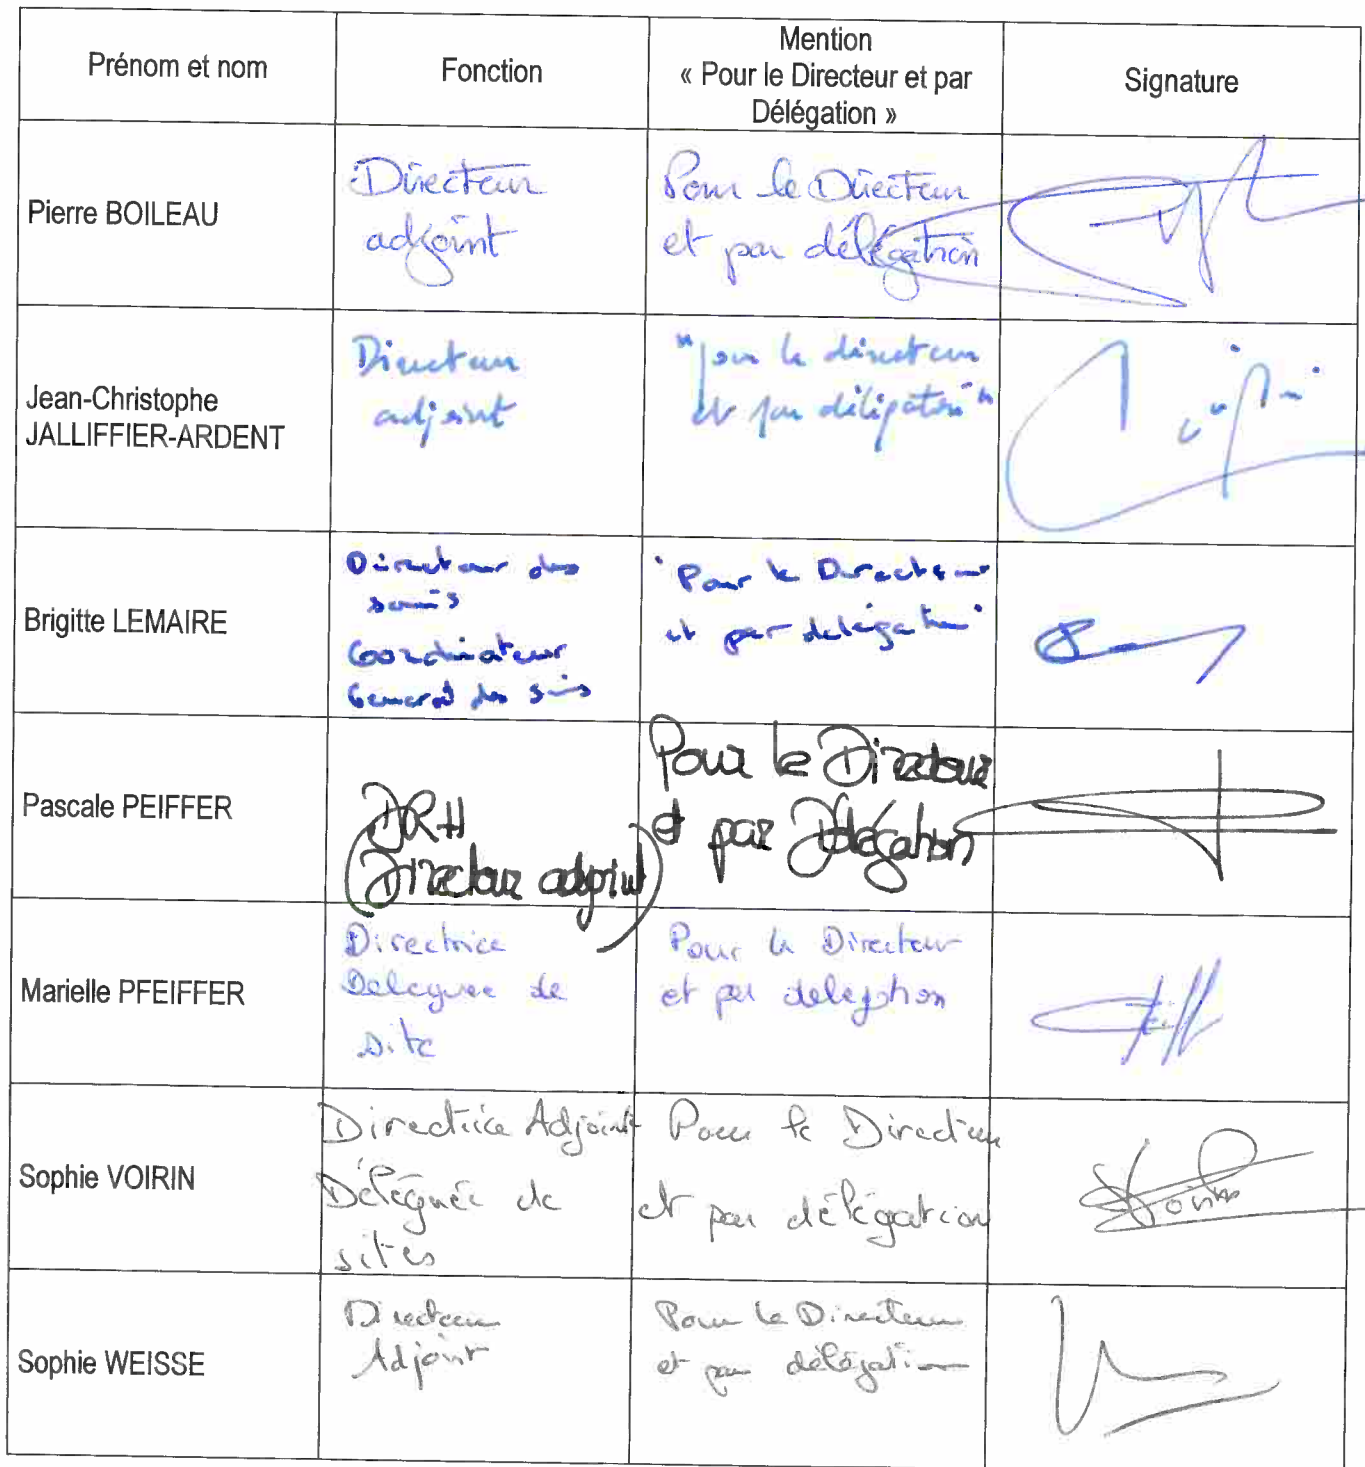 Prénom et nom
Fonction
Mention
« Pour le Directeur et par
Délégation »
Signature
Pierre BOILEAU
Directeur
adjoint
Pour le Directeur
et par délégation
Jean-Christophe
JALLIFFIER-ARDENT
Directeur
adjoint
"pour le directeur
et par délégation"
Brigitte LEMAIRE
Directeur des
soins
Coordinateur
General des soins
"Pour le Directeur
et par delegation"
Pascale PEIFFER
DRH
(Directeur adjoint)
Pour le Directeur
et par Délégation
Marielle PFEIFFER
Directrice
Deleguee de
site
Pour le Directeur
et par delegation
Sophie VOIRIN
Directrice Adjointe
Déléguée de
sites
Pour le Directeur
et par délégation
Voirin
Sophie WEISSE
Directeur
Adjoint
Pour le Directeur
et par délégation